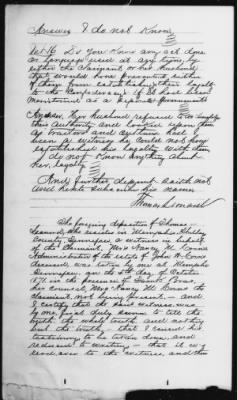 Answer I do not Know
Int 16 Do you Know any act done
or language used at any time, by
either the Claimant or her husband
that would have prevented either
of them from establishing their loyalty
to the Confederacy if it had been
maintained as a separate Government
Answer Her husband refused to
their authority and
as traitors and
been a witness he could not have
established his loyalty with them
I do not Know anything about
her loyalty
And further deponent saith not
and hereto subscribes his name
Thomas Leonard
The foregoing deposition of Thomas
Leonard, who resides in Memphis Shelby
County Tennessee, a witness in behalf
of the Claimant, Mrs Nancy M.
Administratrix of the estate of John
deceased, was taken by me at Memphis
Tennessee, on the 5th day of October
187 in the presence of
her counsel, Mrs Nancy M.
claimant, not being present, - and
I certify that the said witness, was
by me, first duly sworn to tell the
truth the whole truth, and nothing
but the truth, that I caused his
testimony to be taken down and
reduced to writing - that it was
read over to the witness, and then